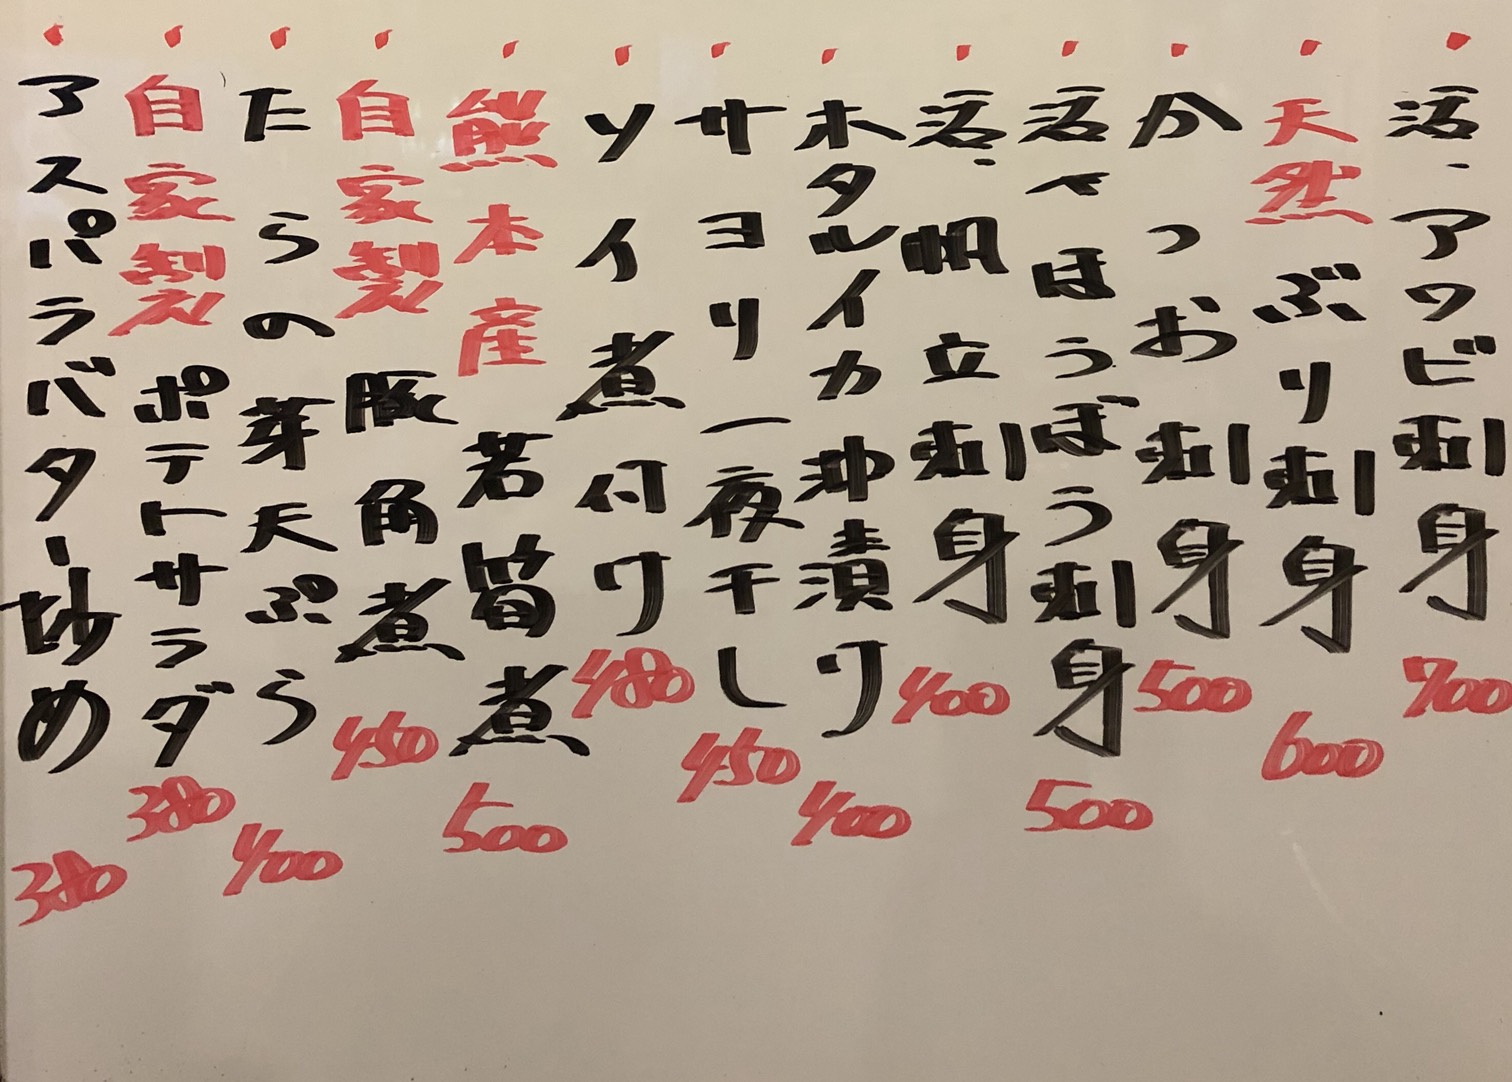 活、アワビ刺身 700
天然ぶり刺身 600
かつお刺身 500
活、ほうぼう刺身 500
活、帆立刺身 400
ホタルイカ沖漬け 400
サヨリ一夜干し 450
ソイ煮付け 480
熊本産若筍煮 500
自家製豚角煮 450
たらの芽天ぷら 400
自家製ポテトサラダ 380
アスパラバター炒め 380